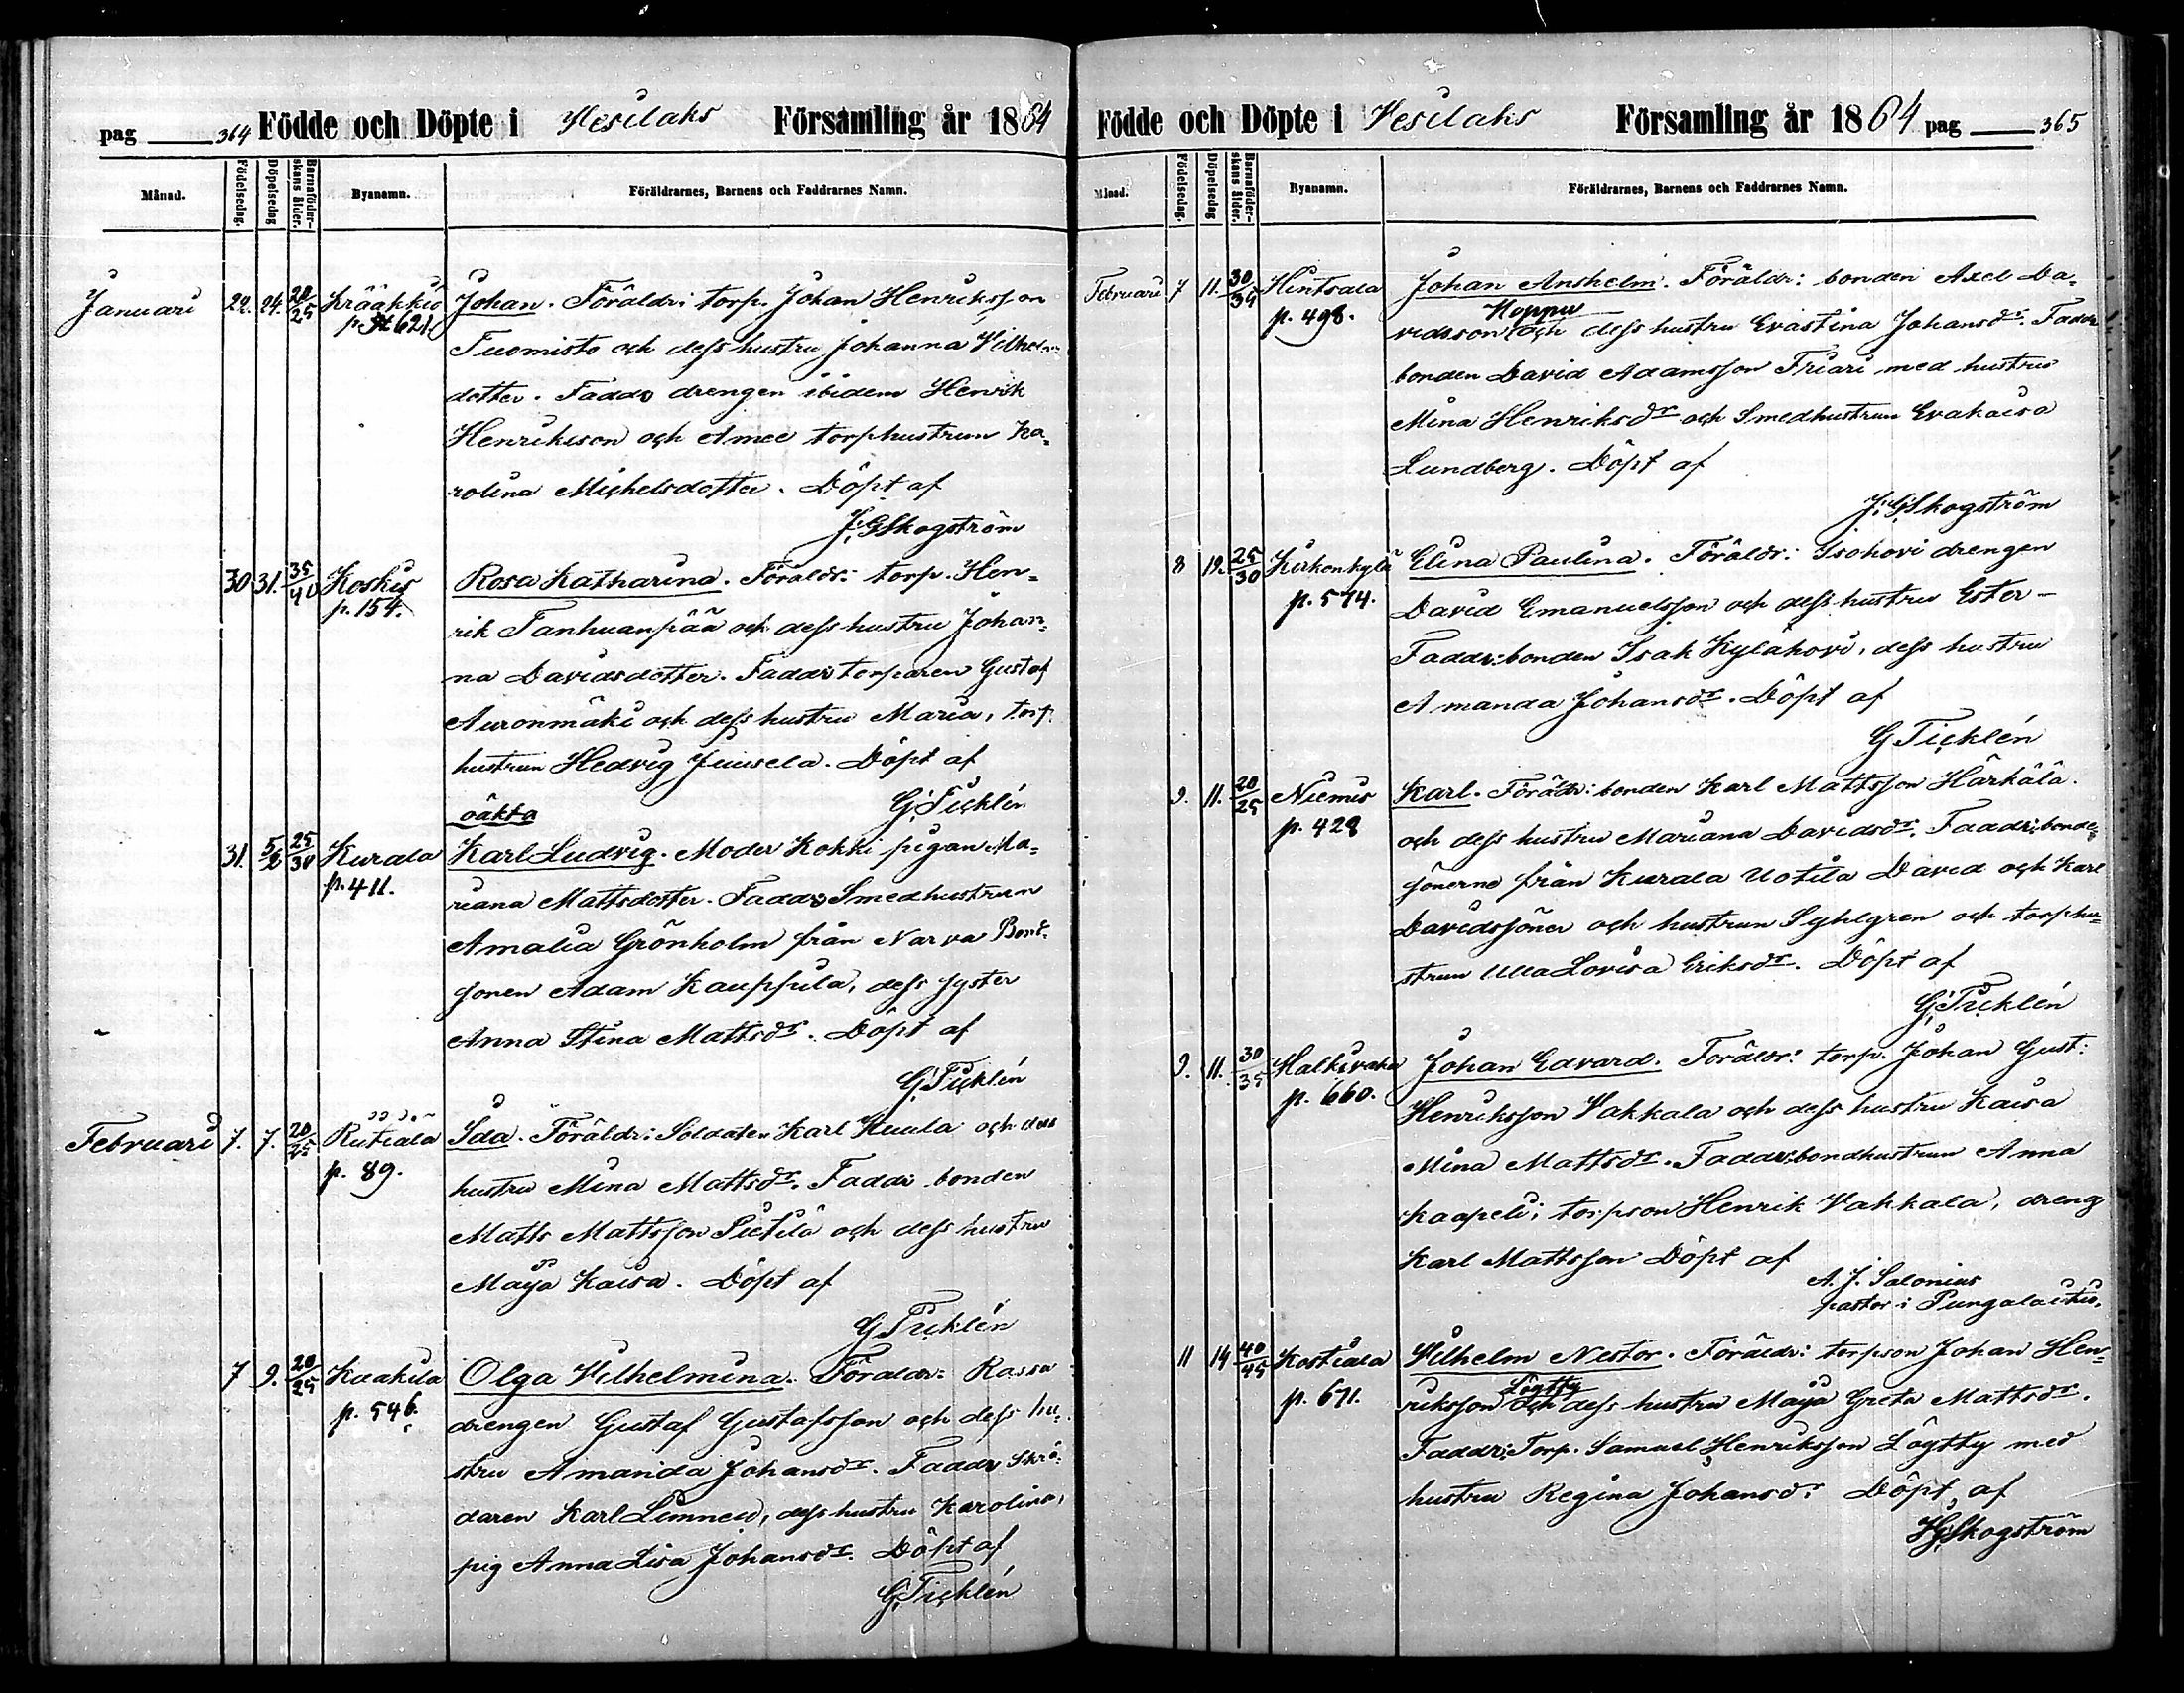 pag 364 Födde och Döpte i Wesilaks Församling år 1864
Månad. Födelsedag. Döpelsedag Barnaföderskans ålder. Byanamn. Föräldrarnes, Barnens och Faddrarnes Namn.
Januari 22. 24. 20/25 Krääkkiö Johan. Föräldr: torp. Johan Henriksson
p. 621. Tuomisto och dess hustru Johanna Vilhelms
dotter. Faddr drengen ibidem Henrik
Henrikson och Amee torphustrun Ka-
rolina Michelsdotter. Döpt af
J. G Skogström
30 31. 35/40 Koskis Rosa Katharina. Föräldr: torp. Hen-
p. 154. rik Tanhuanpää och dess hustru Johan-
na Davidsdotter. Faddr: torparen Gustaf
Auronmäki och dess hustru Maria, torp.
hustrun Hedvig Juusela. Döpt af
G. Ticklén
oäkta
31. 5/2 25/30 Kurala Karl Ludvig. Moder Kokki pigan Ma-
p. 411. riana Mattsdotter. Faddr Smedhustrun
Amalia Grönholm från Narva Bond.
sonen Adam Kauppila, dess syster
Anna Stina Mattsdr. Döpt af
G. Ticklén
Februari 7. 7. 20/25 Rutiala Ida. Föräldr: Soldaten Karl Kuula och dess
p. 89. hustru Mina Mattsdr. Faddr: bonden
Matts Mattsson Sutila och dess hustru
Maija Kaisa. Döpt af
G Ticklén
7 9. 20/25 Kuakila Olga Vilhelmina. Föräldr: Rassa
p. 546. drengen Gustaf Gustafsson och dess hu-
stru Amanda Johansdr. Faddr Skrä-
daren Karl Limnell, dess hustru Karolina,
pig Anna Lisa Johansdr. Döpt af
G. Ticklén
Födde och Döpte i Wesilaks Församling år 1864 pag 365
Månad. Födelsedag. Döpelsedag Barnaföderskans ålder. Byanamn. Föräldrarnes, Barnens och Faddrarnes Namn.
Februari 7 11. 30/35 Hintsala Johan Anshelm. Föräldr: bonden Axel Da-
p. 498. vidsson Hoppu och dess hustru Evastina Johansdr. Faddr
bonden David Adamsson Friari med hustru
Mina Henriksdr och Smedhustrun Evakaisa
Lundberg. Döpt af
J. G. Skogström
8 19. 25/30 Kirkonkylä Elina Paulina. Föräldr: Isohovi drengen
p. 574. David Emanuelsson och dess hustru Ester -
Faddr: bonden Isak Kylähovi, dess hustru
Amanda Johansdr. Döpt af
G Ticklén
9. 11. 20/25 Niemis Karl. Föräldr: bonden Karl Mattsson Härkälä.
p. 428 och dess hustru Mariana Davidsdr. Faddr: bonde-
sönerne från Kurala Uotila David och Karl
Davidssöner och hustrun Syhlgren och torphu-
strun Ulla Lovisa Eriksdr. Döpt af
G. Ticklén
9. 11. 30/35 Halkivaha Johan Edvard. Föräldr: torp. Johan Gust:
p. 660. Henriksson Vakkala och dess hustru Kaisa
Mina Mattsdr. Faddr: bondhustrun Anna
Kaapeli; torpson Henrik Vakkala, dreng
Karl Mattsson Döpt af
A. J. Salonius
pastor i Pungalaitio.
11 14 40/45 Kostiala Wilhelm Nestor. Föräldr: torpson Johan Hen-
p. 671. riksson Lögtty och dess hustru Maija Greta Mattsdr.
Faddr: Torp. Samuel Henriksson Lögtty med
hustru Regina Johansdr. Döpt af
J. G. Skogström